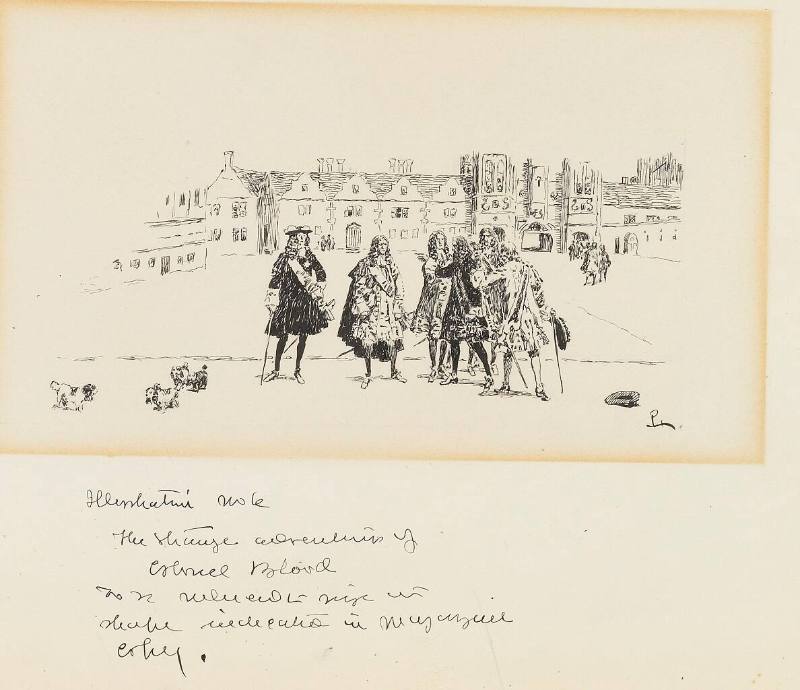 Illustration note
The strange adventures of
Colonel Blood
To be reduced in size in
shape indicated in Magazine
copy.